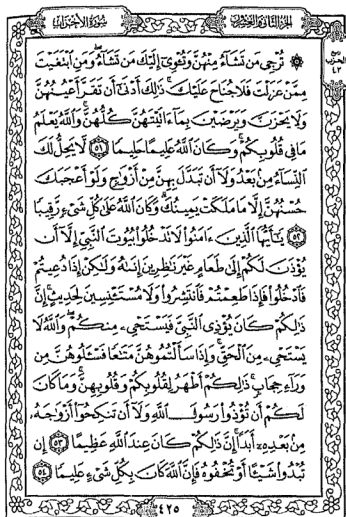 سُورَةُ الأَحْزَابِ
الجُزءُ الثَّانِي وَالعِشْرُونَ
ربع
الحزب
٤٣
۞ تُرْجِي مَن تَشَآءُ مِنْهُنَّ وَتُـْٔوِيٓ إِلَيْكَ مَن تَشَآءُ وَمَنِ ٱبْتَغَيْتَ
مِمَّنْ عَزَلْتَ فَلَا جُنَاحَ عَلَيْكَ ذَٰلِكَ أَدْنَىٰٓ أَن تَقَرَّ أَعْيُنُهُنَّ
وَلَا يَحْزَنَّ وَيَرْضَيْنَ بِمَآ ءَاتَيْتَهُنَّ كُلُّهُنَّ وَٱللَّهُ يَعْلَمُ
مَا فِى قُلُوبِكُمْ وَكَانَ ٱللَّهُ عَلِيمًا حَلِيمًا ۝٥١ لَّا يَحِلُّ لَكَ
ٱلنِّسَآءُ مِنۢ بَعْدُ وَلَآ أَن تَبَدَّلَ بِهِنَّ مِنْ أَزْوَٰجٍ وَلَوْ أَعْجَبَكَ
حُسْنُهُنَّ إِلَّا مَا مَلَكَتْ يَمِينُكَ وَكَانَ ٱللَّهُ عَلَىٰ كُلِّ شَىْءٍ رَّقِيبًا
۝٥٢ يَٰٓأَيُّهَا ٱلَّذِينَ ءَامَنُوا۟ لَا تَدْخُلُوا۟ بُيُوتَ ٱلنَّبِىِّ إِلَّآ أَن
يُؤْذَنَ لَكُمْ إِلَىٰ طَعَامٍ غَيْرَ نَٰظِرِينَ إِنَىٰهُ وَلَٰكِنْ إِذَا دُعِيتُمْ
فَٱدْخُلُوا۟ فَإِذَا طَعِمْتُمْ فَٱنتَشِرُوا۟ وَلَا مُسْتَـْٔنِسِينَ لِحَدِيثٍ إِنَّ
ذَٰلِكُمْ كَانَ يُؤْذِى ٱلنَّبِىَّ فَيَسْتَحْىِۦ مِنكُمْ وَٱللَّهُ لَا
يَسْتَحْىِۦ مِنَ ٱلْحَقِّ وَإِذَا سَأَلْتُمُوهُنَّ مَتَٰعًا فَسْـَٔلُوهُنَّ مِن
وَرَآءِ حِجَابٍ ذَٰلِكُمْ أَطْهَرُ لِقُلُوبِكُمْ وَقُلُوبِهِنَّ وَمَا كَانَ
لَكُمْ أَن تُؤْذُوا۟ رَسُولَ ٱللَّهِ وَلَآ أَن تَنكِحُوٓا۟ أَزْوَٰجَهُۥ
مِنۢ بَعْدِهِۦٓ أَبَدًا إِنَّ ذَٰلِكُمْ كَانَ عِندَ ٱللَّهِ عَظِيمًا ۝٥٣ إِن
تُبْدُوا۟ شَيْـًٔا أَوْ تُخْفُوهُ فَإِنَّ ٱللَّهَ كَانَ بِكُلِّ شَىْءٍ عَلِيمًا ۝٥٤
٤٢٥